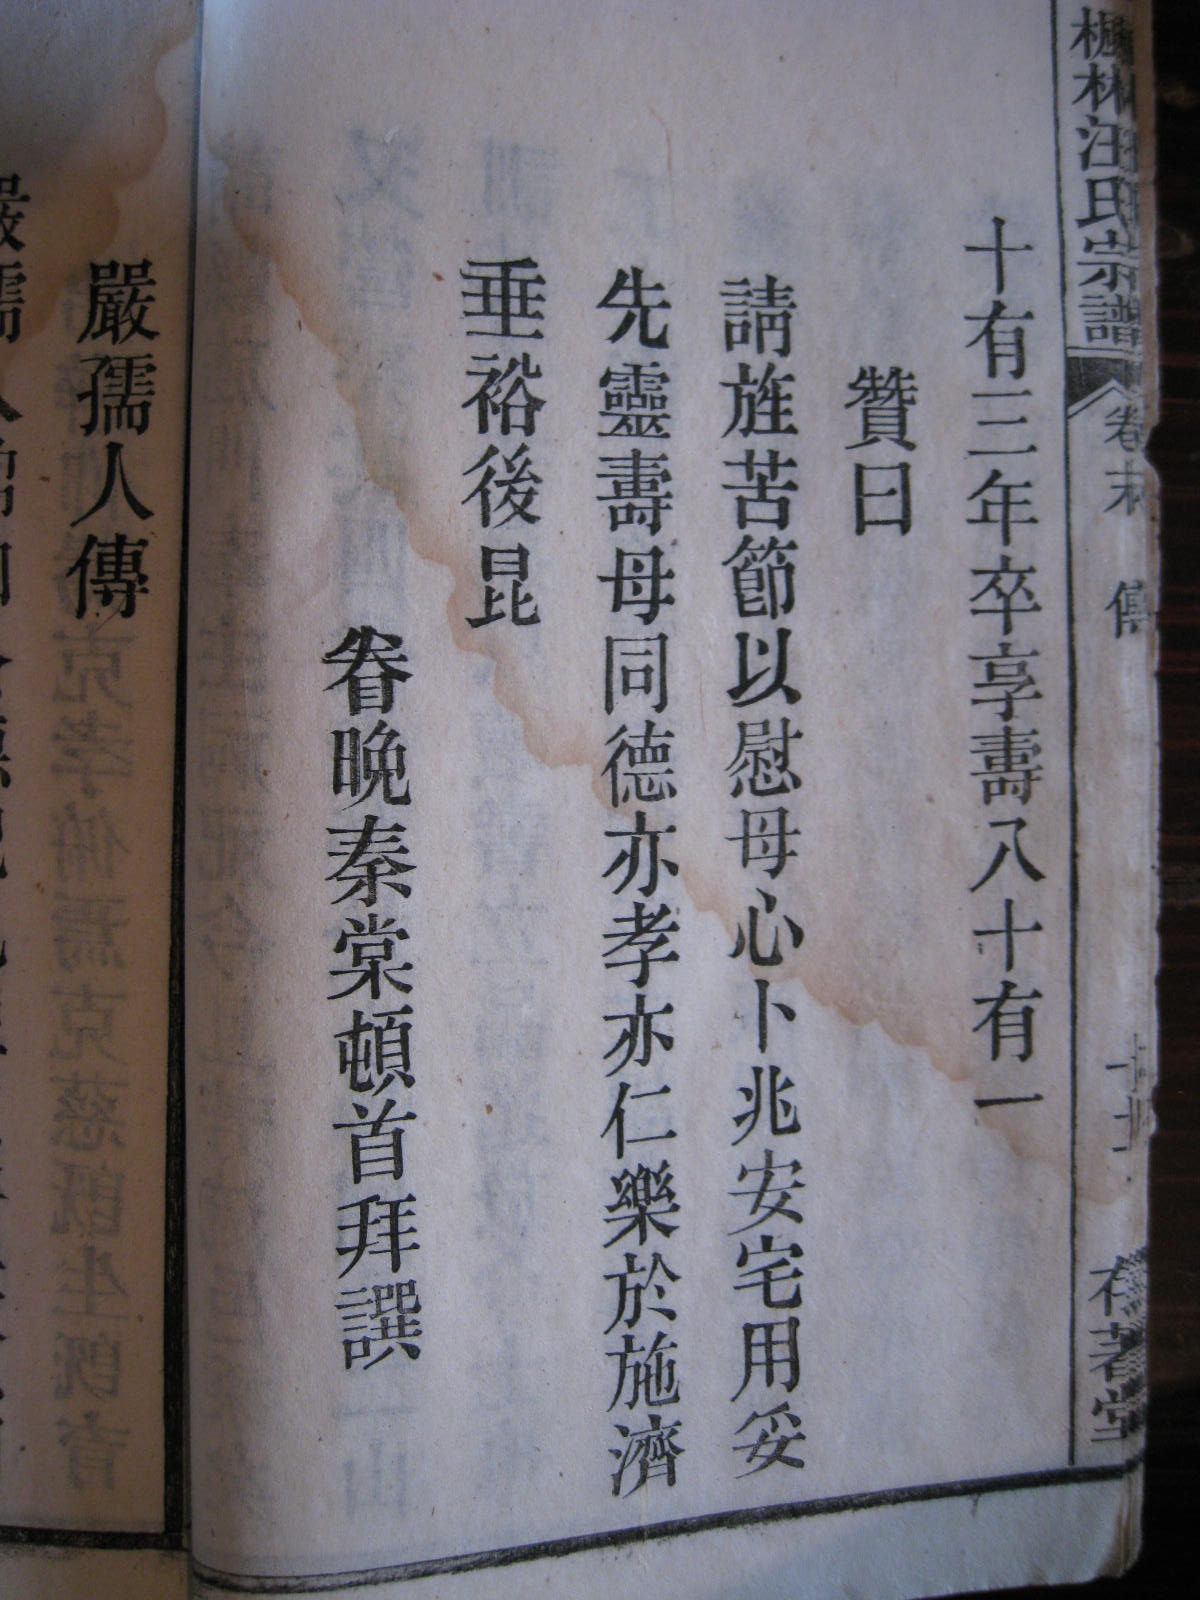 樾林汪氏宗譜 卷末 傳 存著堂
十有三年卒享壽八十有一
贊曰
請旌苦節以慰母心卜兆安宅用妥
先靈壽母同德亦孝亦仁樂於施濟
垂裕後昆
眷晚秦棠頓首拜譔
嚴孺人傳
嚴孺人